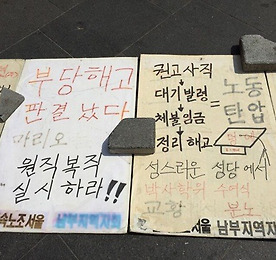 부당해고
판결 났다
마리오
원직복직
실시하라!!
속노조서울 남부지역지회
권고사직
↓
대기발령
↓
체불임금
↓
정리해고
= 노동
탄압
성스러운 성당에서
박사학위 수여식
교황 분노
노조서울 남부지역지